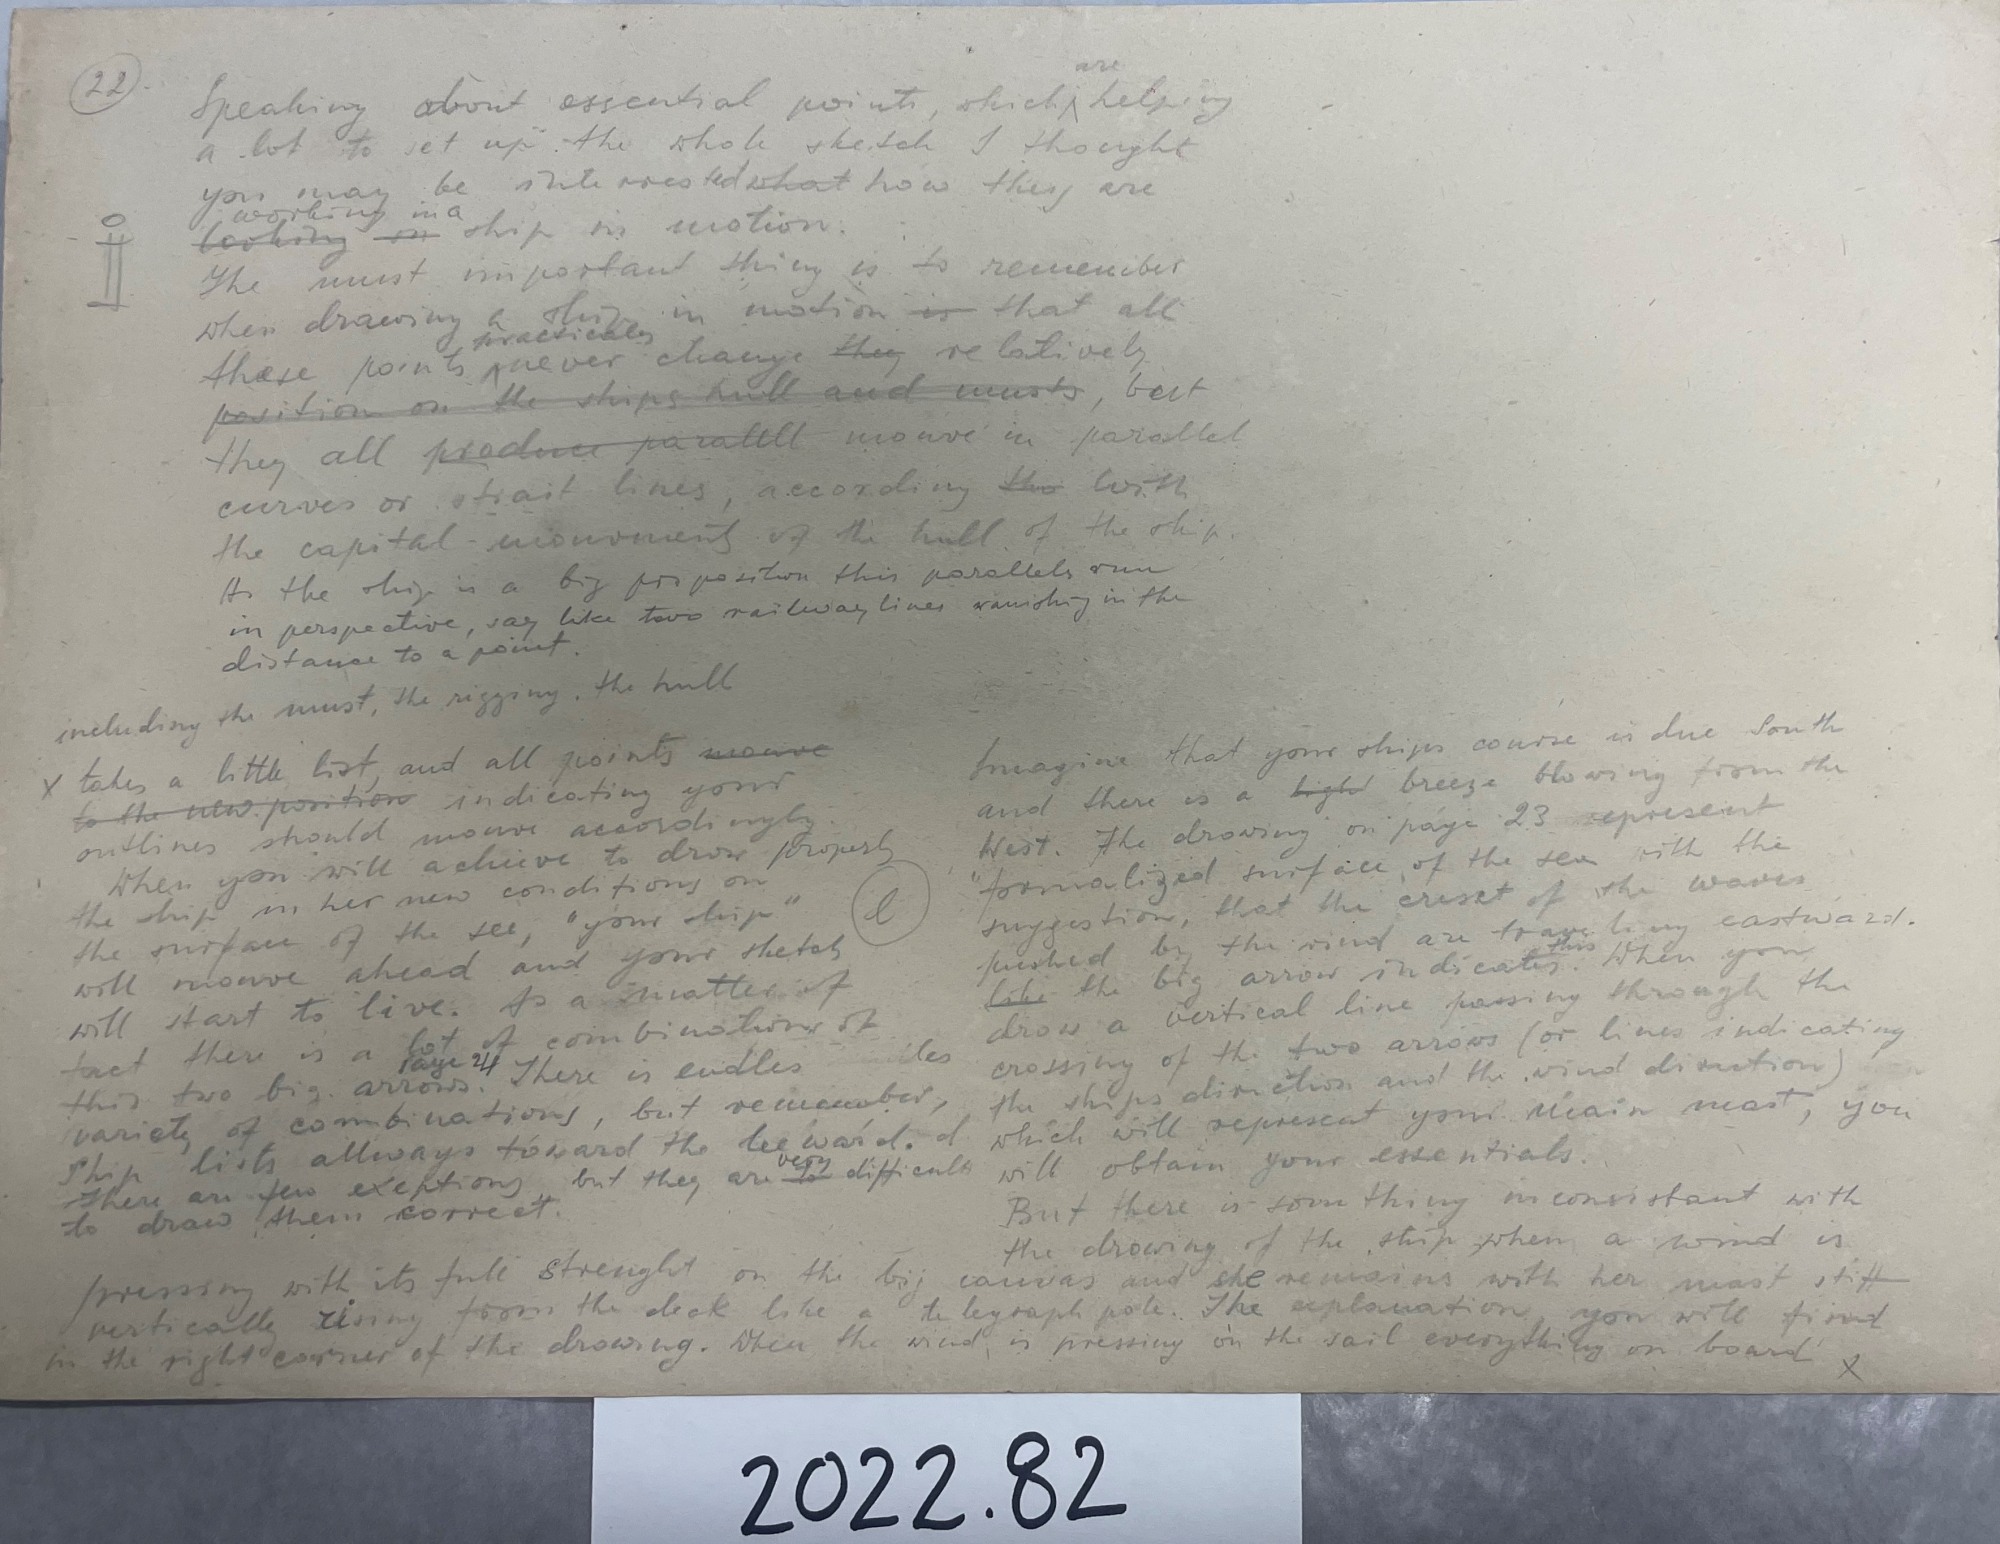 22
are
Speaking about essential points, which helping
a lot to set up the whole sketch I thought
you may be interrested what how they are
working in a
looking on ship in motion.
The must important thing is to remember
when drawing a ship in motion is that all
practicaly
these points never change they relatively
position on the ships hull and musts, but
they all produce paralell mouve in parallel
curves or strait lines, according the with
the capital mouvments of the hull of the ship.
As the ship is a big proposition this parallels run
in perspective, say like two railway lines wanishing in the
distance to a point.
including the must, the rigging, the hull
x takes a little list, and all points mouve
to the new position indicating your
outlines should mouve accordingly.
When you will achieve to draw properly
the ship in her new conditions on
the surface of the see, "your ship"
will mouve ahead and your sketch
will start to live. As a matter of
fact there is a lot of combinations of
page 24
this two big arrows. There is endles
variety of combinations, but remember,
ship lists allways toward the leeward.
very
There are few exeptions but they are to difficult
to draw them correct.
l
Imagine that your ships course is due South
and there is a light breeze blowing from the
West. The drawing on page 23 represent
"formalized surface, of the sea with the
suggestion, that the creset of the waves
pushed by the wind are traveling eastward.
this
like the big arrow indicates. When you
draw a vertical line passing through the
crossing of the two arrows (or lines indicating
the ships dirnction and the wind dirnction)
which will represent your main mast, you
will obtain your essentials.
But there is something inconsistant with
the drawing of the ship when a wind is
pressing with its full strenght on the big canvas and she remains with her mast stiff
vertically rising from the deck like a telegraph pole. The explanation, you will find
in the right corner of the drawing. When the wind, is pressing on the sail everything on board x
2022.82